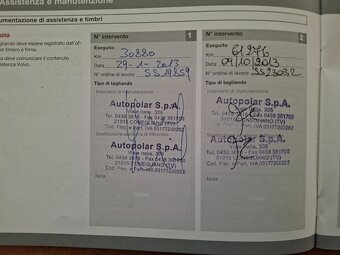 Assistenza e manutenzione
umentazione di assistenza e timbri
alità
agliando deve essere registrato dall'of-
n timbro e firma.
a deve comunicare il contenuto
ssistenza Volvo.
N° intervento 1
Eseguito
Km 30880
Data 29-1-2013
N° ordine di lavoro SS19859
Tipo di tagliando
Interventi di manutenzione
Autopolar S.p.A.
Viale Italia, 305
31015 CONEGLIANO (TV)
Cod. Fisc. e Part. IVA 03177200262
Autopolar S.p.A.
Viale Italia, 305
31015 CONEGLIANO (TV)
Cod. Fisc. e Part. IVA 03177200262
Nota
N° intervento 2
Eseguito
Km 61276
Data 09/10/2013
N° ordine di lavoro SS23032
Tipo di tagliando
Interventi di manutenzione
Autopolar S.p.A.
Viale Italia, 305
31015 CONEGLIANO (TV)
Cod. Fisc. e Part. IVA 03177200262
Autopolar S.p.A.
Viale Italia, 305
31015 CONEGLIANO (TV)
Cod. Fisc. e Part. IVA 03177200262
Nota